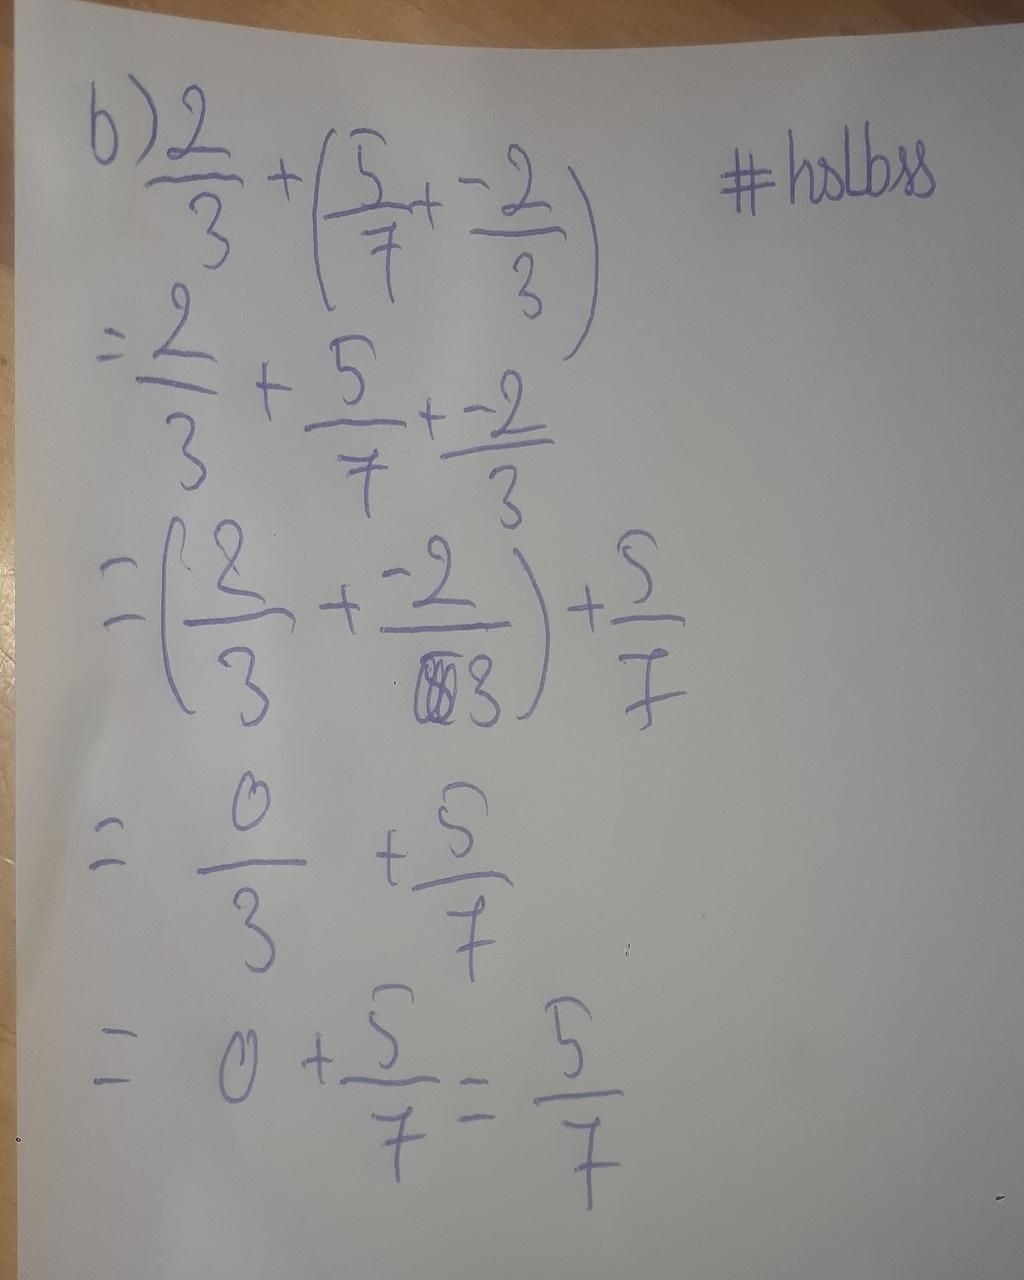 b) 2/3 + (5/7 + -2/3) #hslbss
= 2/3 + 5/7 + -2/3
= (2/3 + -2/3) + 5/7
= 0/3 + 5/7
= 0 + 5/7 = 5/7